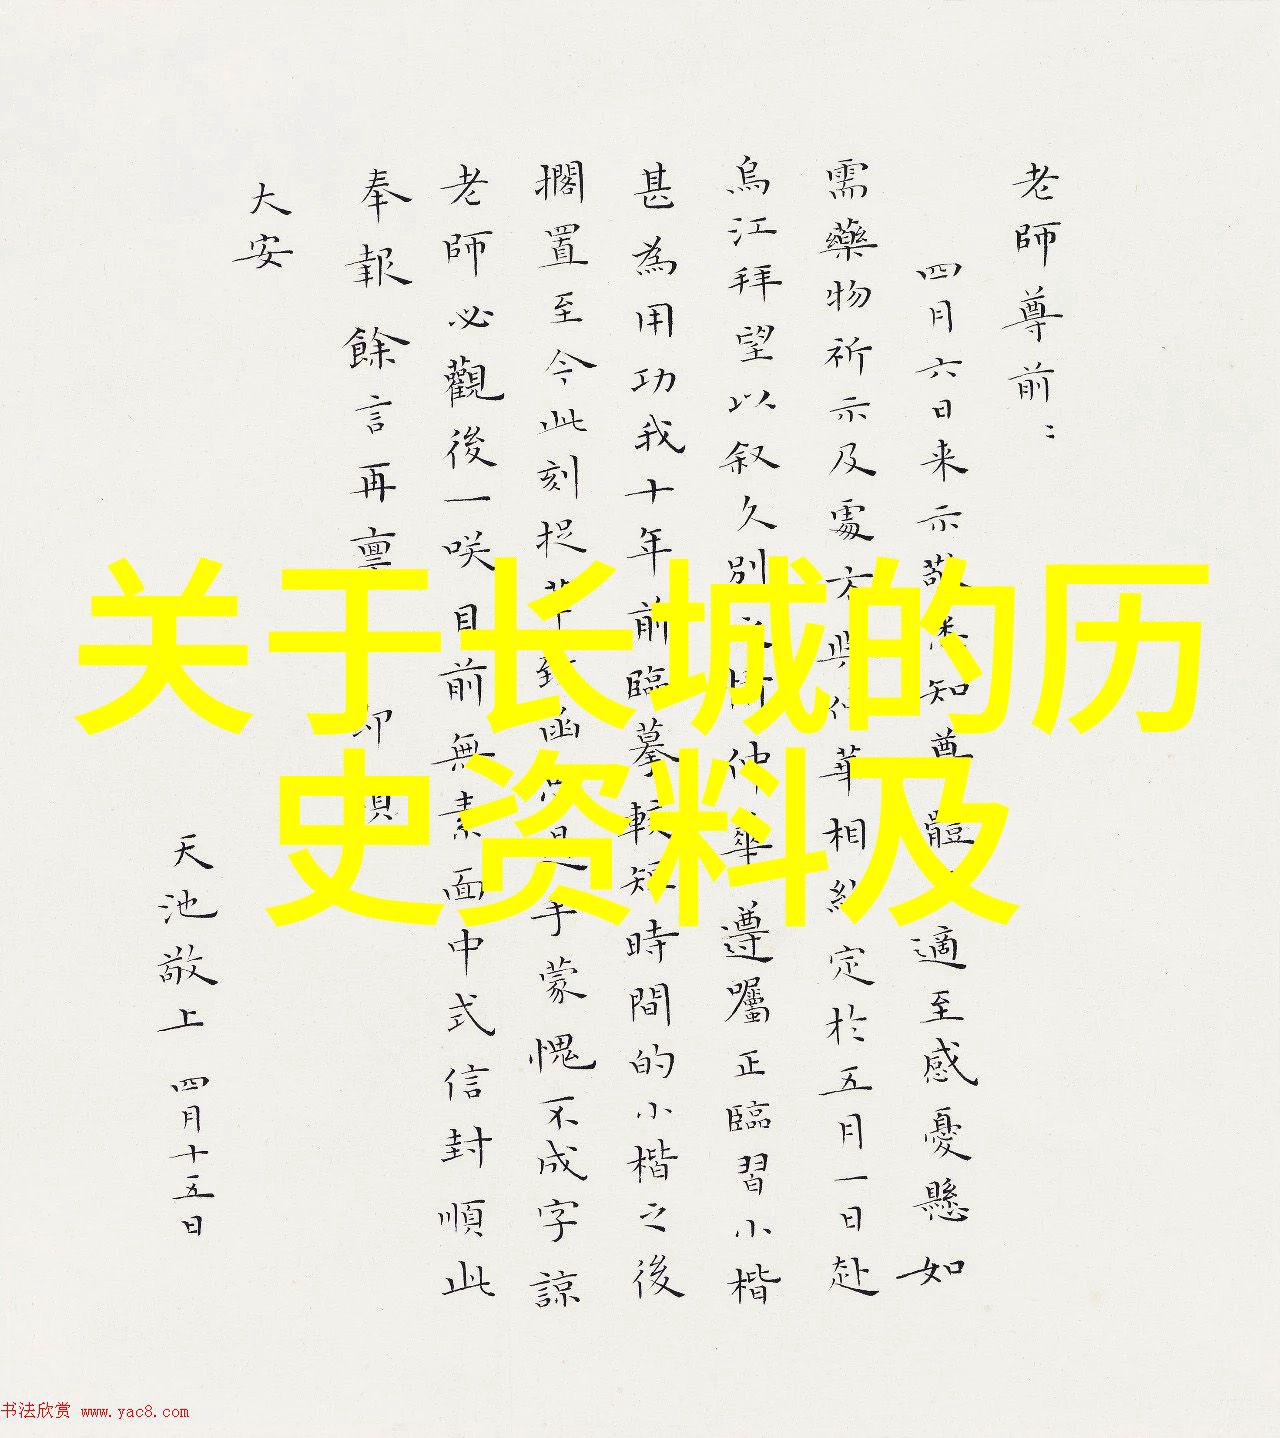 老師尊前：
四月六日来示敬悉知尊體適至感憂懸如
需藥物祈示及處方與仲華相約定於五月一日赴
烏江拜望以叙久别之情仲華遵囑正臨習小楷
甚為用功我十年前臨摹較短時間的小楷之後
擱置至今此刻捉筆到函像是手蒙愧不成字諒
老師必觀後一咲目前無素面中式信封順此
奉報餘言再禀 卽頌
大安
天池敬上 四月十五日
关于长城的历
史资料及
书法欣赏 www.yac8.com